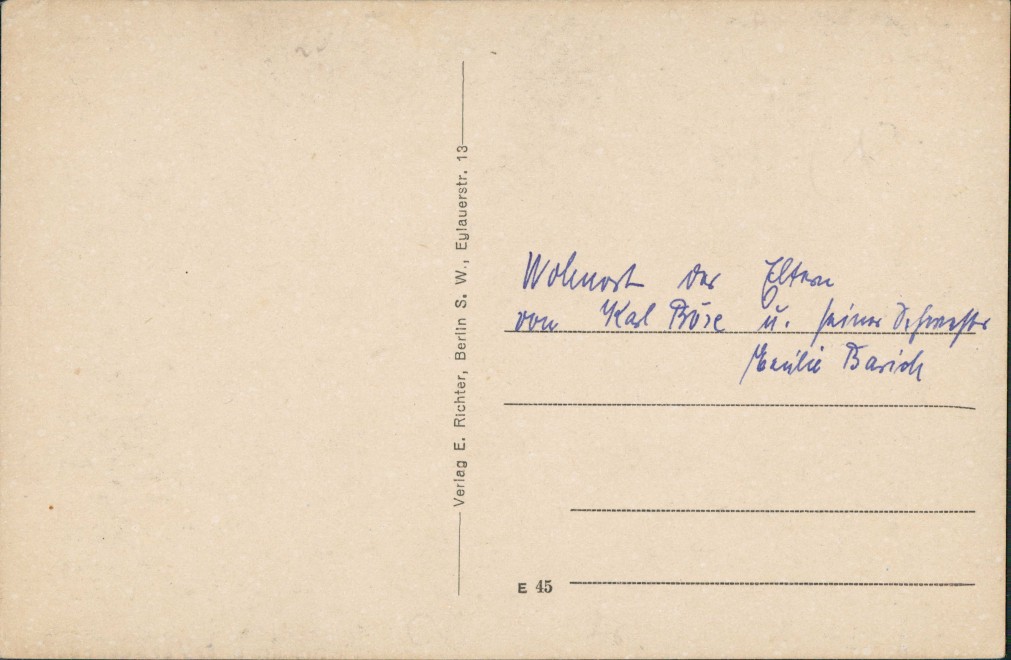 Verlag E. Richter, Berlin S. W., Eylauerstr. 13
Wohnort der Eltern
von Karl Böse u. seiner Schwester
Emilie Barich
E 45